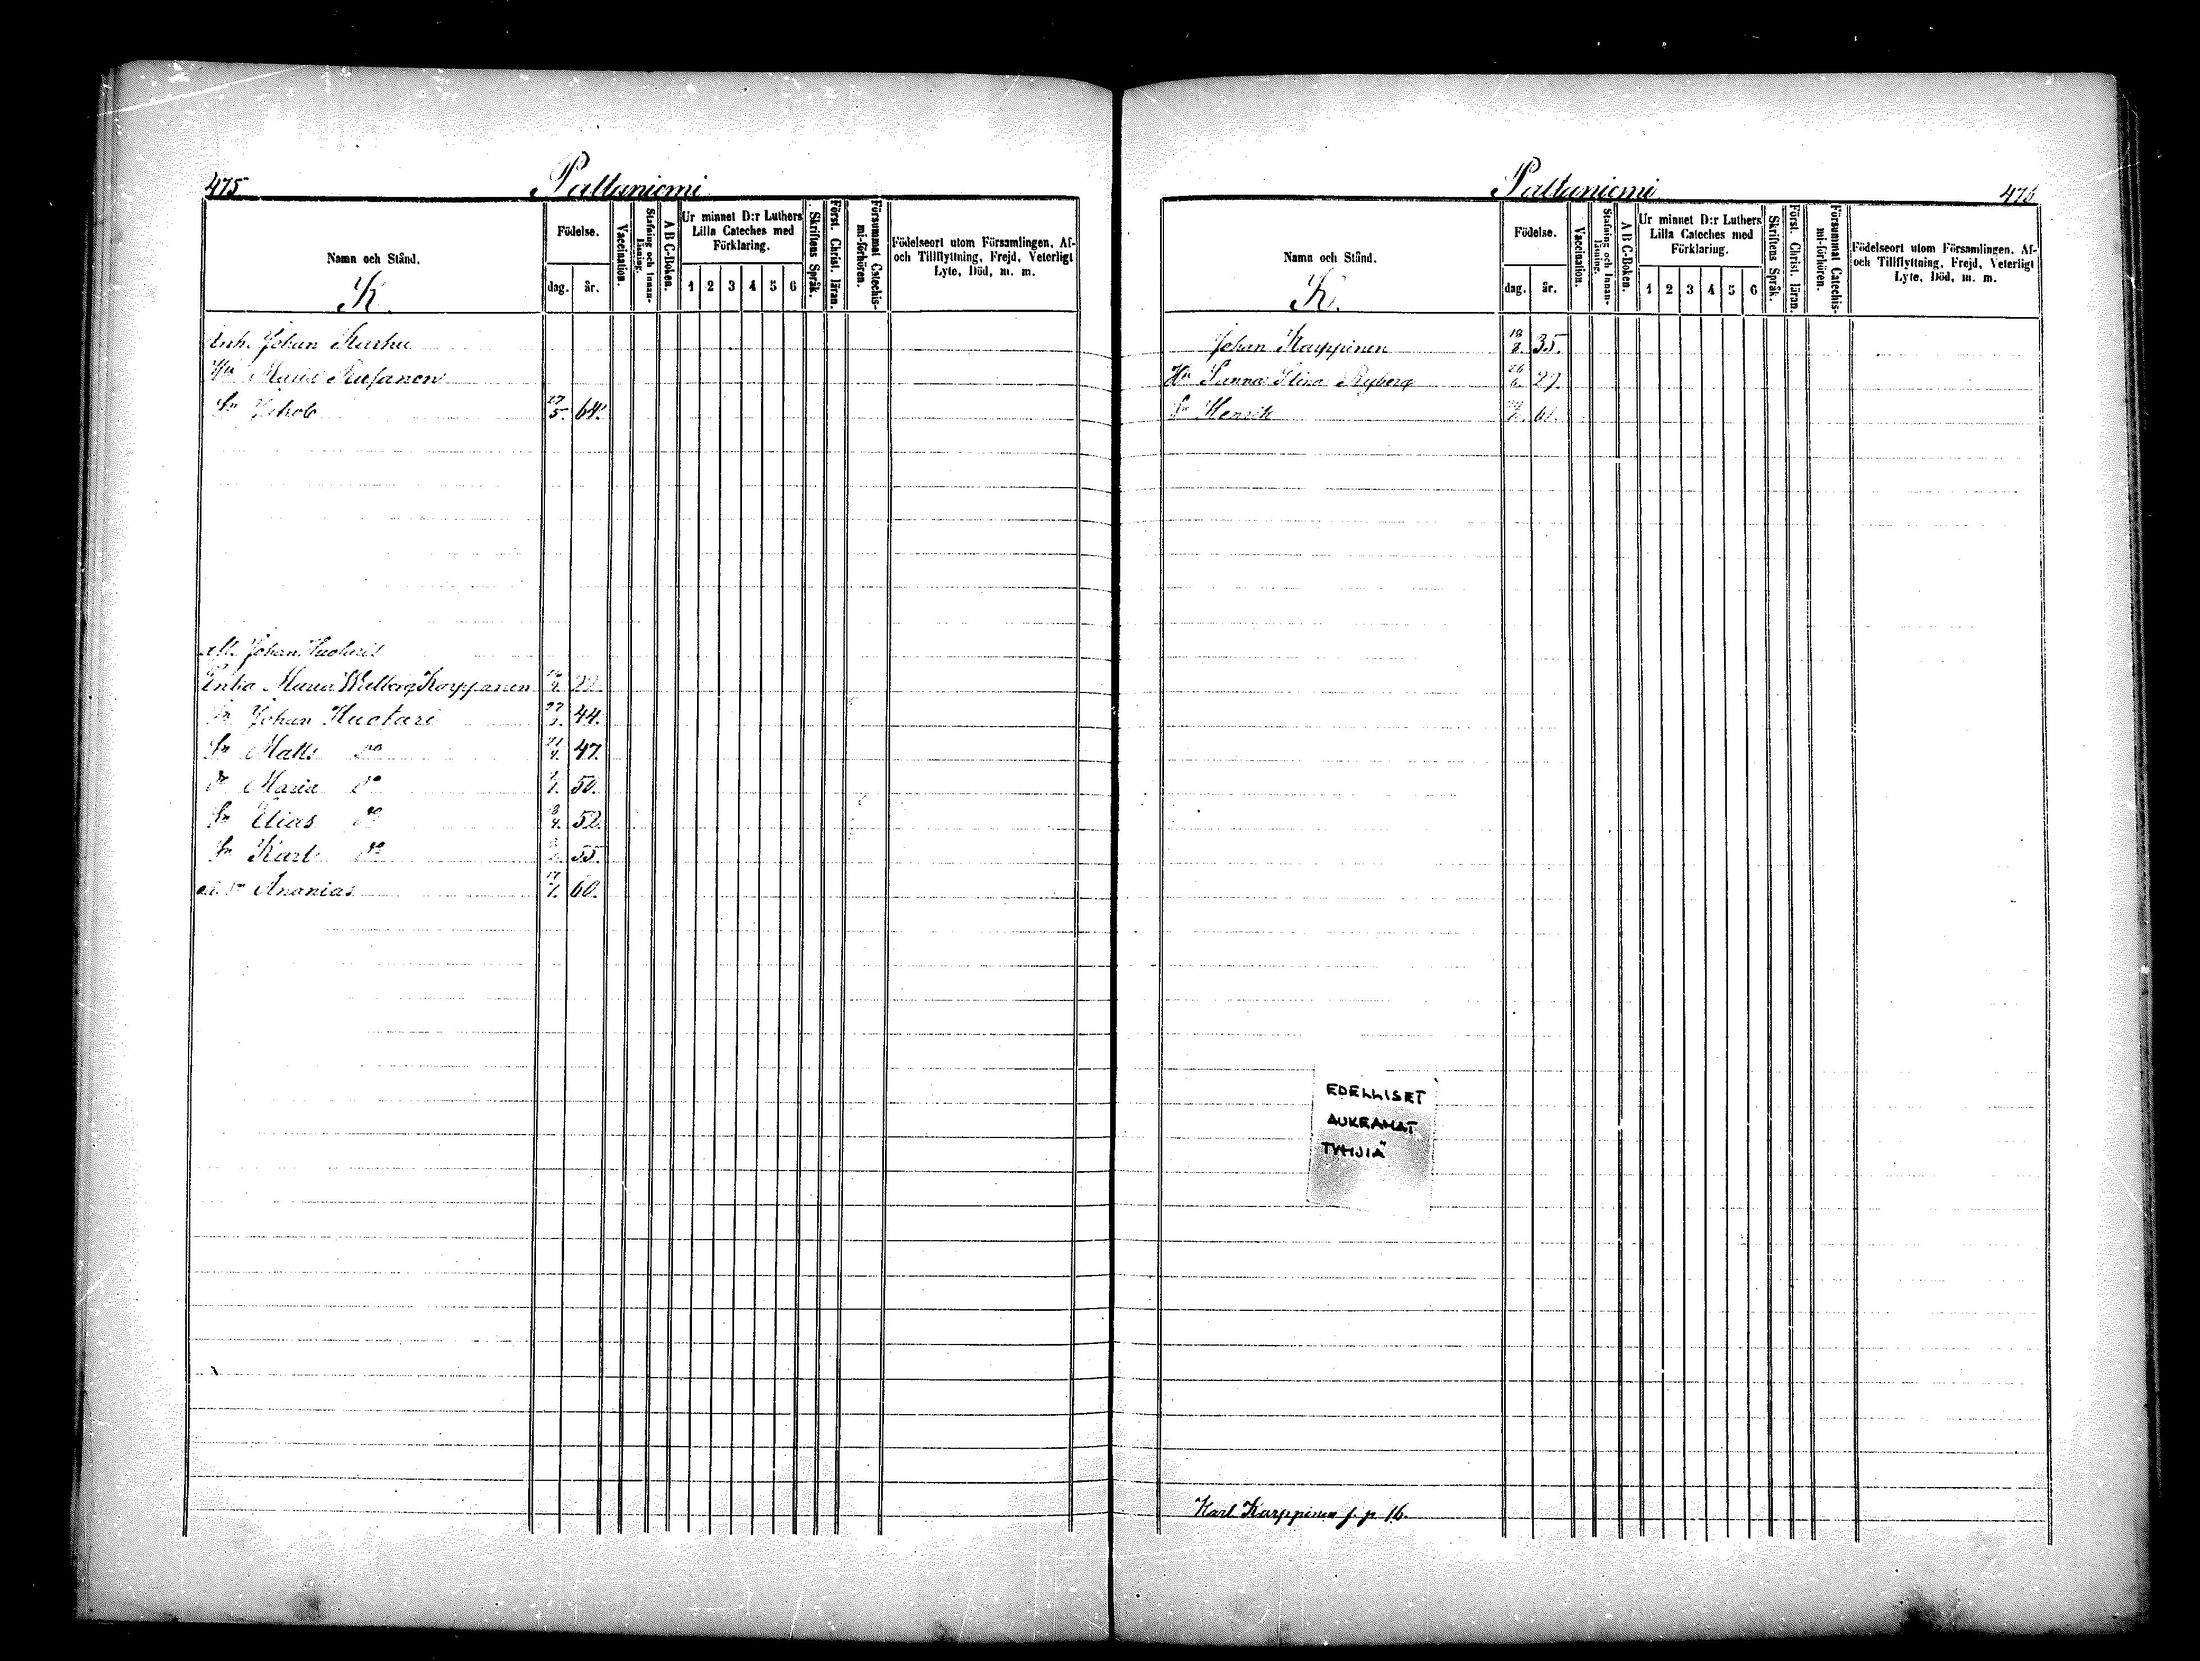 475 Paltaniemi
Namn och Stånd. Födelse. Vaccination. Stafning och Innanläsning. A B C-Boken. Ur minnet D:r Luthers Lilla Cateches med Förklaring. Skriftens Språk. Först. Christ. läran. Försummat Catechismi-förhören. Födelseort utom Församlingen, Af- och Tillflyttning, Frejd, Veterligt Lyte, Död, m. m.
K. dag. år. 1 2 3 4 5 6
Inh. Johan Karhu
Hu Maria
Sn Jakob 27/5. 64.
Johan Huotari
Enka Maria Karppanen 22.
Sn Johan Huotari 27 44.
Sn Matts do 47.
Dr Maria do 50.
Sn Elias do 52.
Sn Karl do 55.
Sn Ananias 60.
Paltaniemi 476
Namn och Stånd. Födelse. Vaccination. Stafning och Innanläsning. A B C-Boken. Ur minnet D:r Luthers Lilla Cateches med Förklaring. Skriftens Språk. Först. Christ. läran. Försummat Catechismi-förhören. Födelseort utom Församlingen, Af- och Tillflyttning, Frejd, Veterligt Lyte, Död, m. m.
K. dag. år. 1 2 3 4 5 6
Johan Karppinen 18/8. 35.
Hu Sanna Stina Ryberg 26/6. 27.
Sn Henrik
EDELLISET
AUKEAMAT
TYHJIÄ
Karl Karppinen f. p. 16.